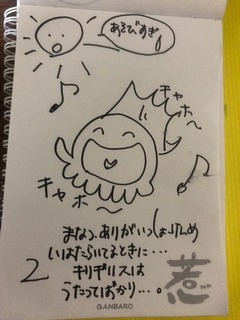 あそびすぎ
キャホ〜
キャホ〜
まなつ、ありがいっしょけんめ
いはたらいてるときに・・・
2
キリギリスは
うたってばかり・・・。
惹
GANBARO